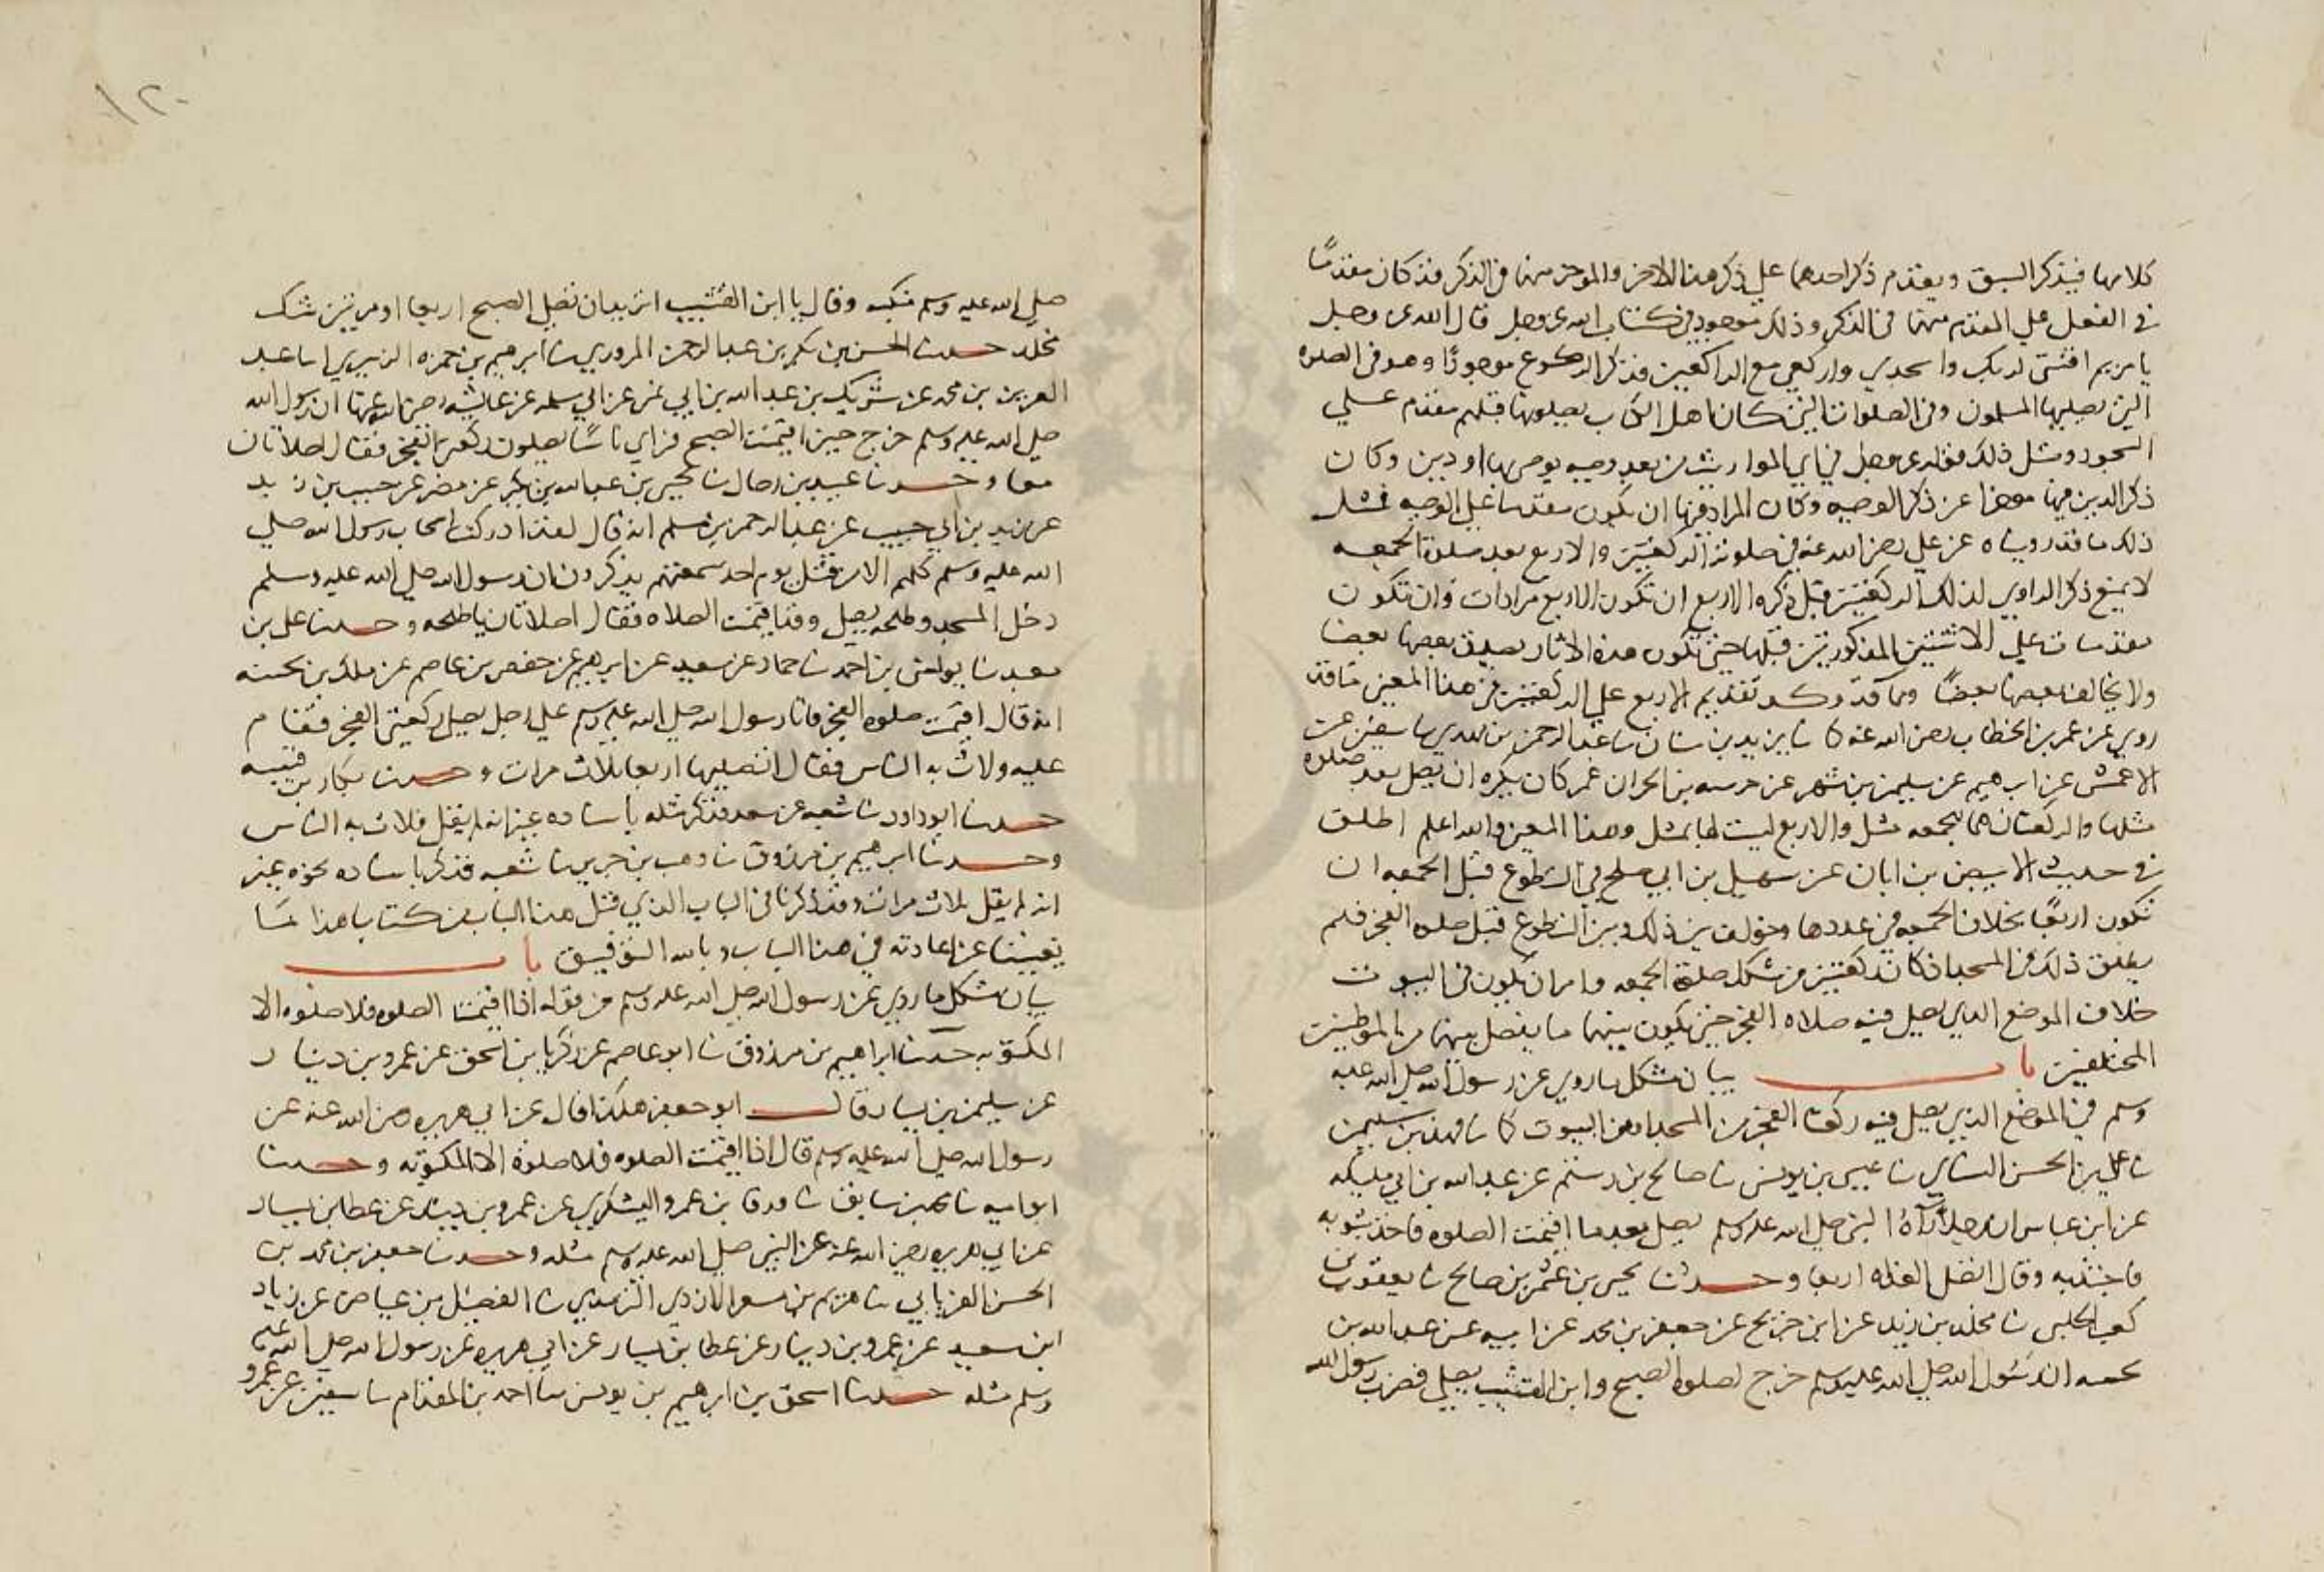 كلامها فيذكر السبق ويقدم ذكر احدهما على ذكر هذا الاخر والموخر منهما في الذكر قد كان مقدمًا
في الفعل على المقدم منهما في الذكر وذلك موجود في كتاب الله عز وجل قال الله عز وجل
يا مريم اقنتي لربك واسجدي واركعي مع الراكعين فذكر الركوع موجودًا وهو في الصلوه
التي يصليها المسلمون وفي الصلوات التي كان اهل الكتاب يصلونها قبلهم مقدم على
السجود ومثل ذلك قوله عز وجل في اي المواريث من بعد وصيه يوصي بها او دين وكان
ذكر الدين فيها موخرا عن ذكر الوصيه وكان المراد فيها ان يكون مقدما على الوصيه فمثل
ذلك ما قد رويناه عن علي رضي الله عنه في صلوته الركعتين والاربع بعد صلاة الجمعه
لا يمنع ذكر الراوي لذلك الركعتين قبل ذكره الاربع ان تكون الاربع مرادات وان تكون
مقدمات على الاثنتين المذكورتين قبلها حتى تكون هذه الاثار يصدق بعضها بعضا
ولا يخالف بعضها بعضًا ومما قد وكد تقديم الاربع على الركعتين في هذا المعنى ما قد
روي عن عمر بن الخطاب رضي الله عنه كا نا يزيد بن سنان نا عبد الرحمن بن مهدي نا سفين عن
الاعمش عن ابرهيم عن سليمن بن مسهر عن خرشه بن الحر ان عمر كان يكره ان يصلى بعد صلوه
مثلها والركعتان هما للجمعه مثل والاربع ليست لها بمثل وهذا المعنى والله اعلم اطلق
في حديث الابيض بن ابان عن سهيل بن ابي صالح في التطوع قبل الجمعه ان
تكون اربعًا بخلاف الجمعه في عددها وخولف بين ذلك وبين التطوع قبل صلوه الفجر فلم
يطلق ذلك في المسجد اذ كان ركعتين من شكل صلاة الجمعه وامر ان يكون في البيوت
خلاف الموضع الذي يصلى فيه صلاه الفجر حتى يكون بينهما ما يفصل بينهما من الموطنين
المختلفين باب بيان مشكل ما روي عن رسول الله صلى الله عليه
وسلم في الموضع الذي يصلى فيه ركعتا الفجر من المسجد او من البيوت كا نا فهد بن سليمن
نا علي بن الحسن النساي نا عيسى بن يونس نا صالح بن رستم عن عبد الله بن ابي مليكه
عن ابن عباس ان رجلاً رآه النبي صلى الله عليه وسلم يصلي بعدما اقيمت الصلوه فاخذ بثوبه
فاجتذبه وقال اتصلي الغداه اربعا وحدثنا يحيى بن عثمن بن صالح نا يعقوب بن
كعب الحلبي نا مخلد بن يزيد عن ابن جريج عن جعفر بن محمد عن ابيه عن عبد الله بن
بحينه ان رسول الله صلى الله عليه وسلم خرج لصلوه الصبح وابن القشب يصلي فضرب رسول الله
١٢٠
صلى الله عليه وسلم منكبه وقال يا ابن القشب اتريد ان تصلي الصبح اربعا او مرتين شك
مخلد حدثنا الحسن بن بكر بن عبد الرحمن المروزي نا ابرهيم بن حمزه الزبيري انا عبد
العزيز بن محمد عن شريك بن عبد الله بن ابي نمر عن ابي سلمه عن عايشه رضي الله عنها ان رسول الله
صلى الله عليه وسلم خرج حين اقيمت الصبح فراى ناسًا يصلون ركعتي الفجر فقال اصلاتان
معا وحدثنا عبيد بن رحال نا يحيى بن عبد الله بن بكير عن مضر عن حبيب بن زيد
عن يزيد بن ابي حبيب عن عبد الرحمن بن سلم انه قال لقد ادركت اصحاب رسول الله صلى
الله عليه وسلم كلهم الا من قتل يوم احد سمعتهم يذكرون ان رسول الله صلى الله عليه وسلم
دخل المسجد وطلحه يصلي وقد اقيمت الصلاه فقال اصلاتان يا طلحه وحدثنا علي بن
معبد نا يونس بن احمد نا حماد عن سعيد عن ابرهيم عن حفص بن عاصم عن ملك بن بحينه
انه قال اقيمت صلوه الفجر فاتا رسول الله صلى الله عليه وسلم على رجل يصلي ركعتي الفجر فقام
عليه ولاث به الناس فقال اتصليها اربعا ثلاث مرات وحدثنا بكار بن قتيبه
حدثنا ابو داود نا شعبه عن سعد فذكر مثله باسناده غير انه لم يقل فلاث به الناس
وحدثنا ابرهيم بن مرزوق نا وهب بن جرير نا شعبه فذكر باسناده نحوه غير
انه لم يقل ثلاث مرات وقد ذكرنا في الباب الذي قبل هذا الباب من كتابنا هذا ما
يغنينا عن اعادته في هذا الباب وبالله التوفيق باب
بيان مشكل ما روي عن رسول الله صلى الله عليه وسلم من قوله اذا اقيمت الصلوه فلا صلوه الا
المكتوبه حدثنا ابراهيم بن مرزوق نا ابو عاصم عن زكريا بن اسحق عن عمرو بن دينار
عن سليمن بن يسار قال ابو جعفر هكذا قال عن ابي هريره رضي الله عنه عن
رسول الله صلى الله عليه وسلم قال اذا اقيمت الصلوه فلا صلوة الا المكتوبه وحدثنا
ابو اميه نا محمد بن سابق نا ورقا بن عمر واليشكري عن عمرو بن دينار عن عطا بن يسار
عن ابي هريره رضي الله عنه عن النبي صلى الله عليه وسلم مثله وحدثنا جعفر بن محمد بن
الحسن الفريابي نا هريم بن مسعر الازدي الترمذي نا الفضيل بن عياض عن زياد
ابن سعيد عن عمرو بن دينار عن عطا بن يسار عن ابي هريره عن رسول الله صلى الله عليه
وسلم مثله حدثنا اسحق بن ابرهيم بن يونس نا احمد بن المقدام نا سفين عن عمرو